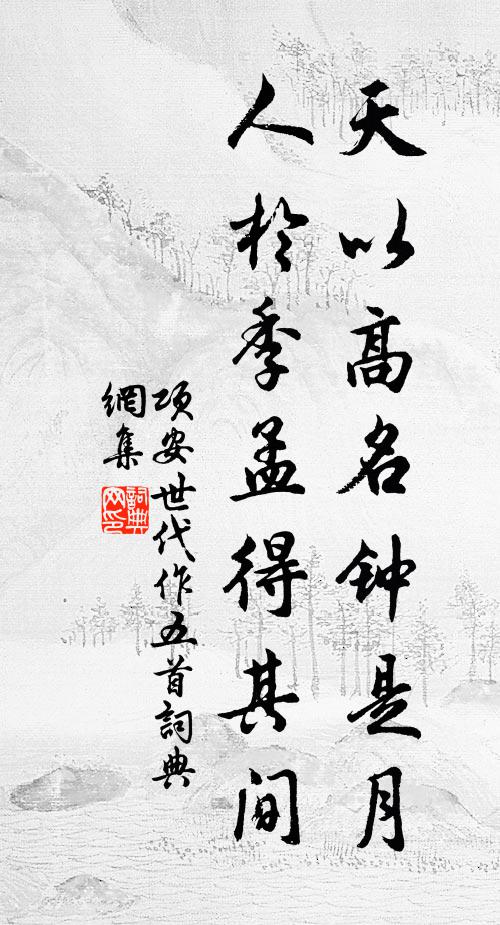 天以高名钟是月
人於季孟得其间
项安世代作五首詞典
網集
詞典
网印